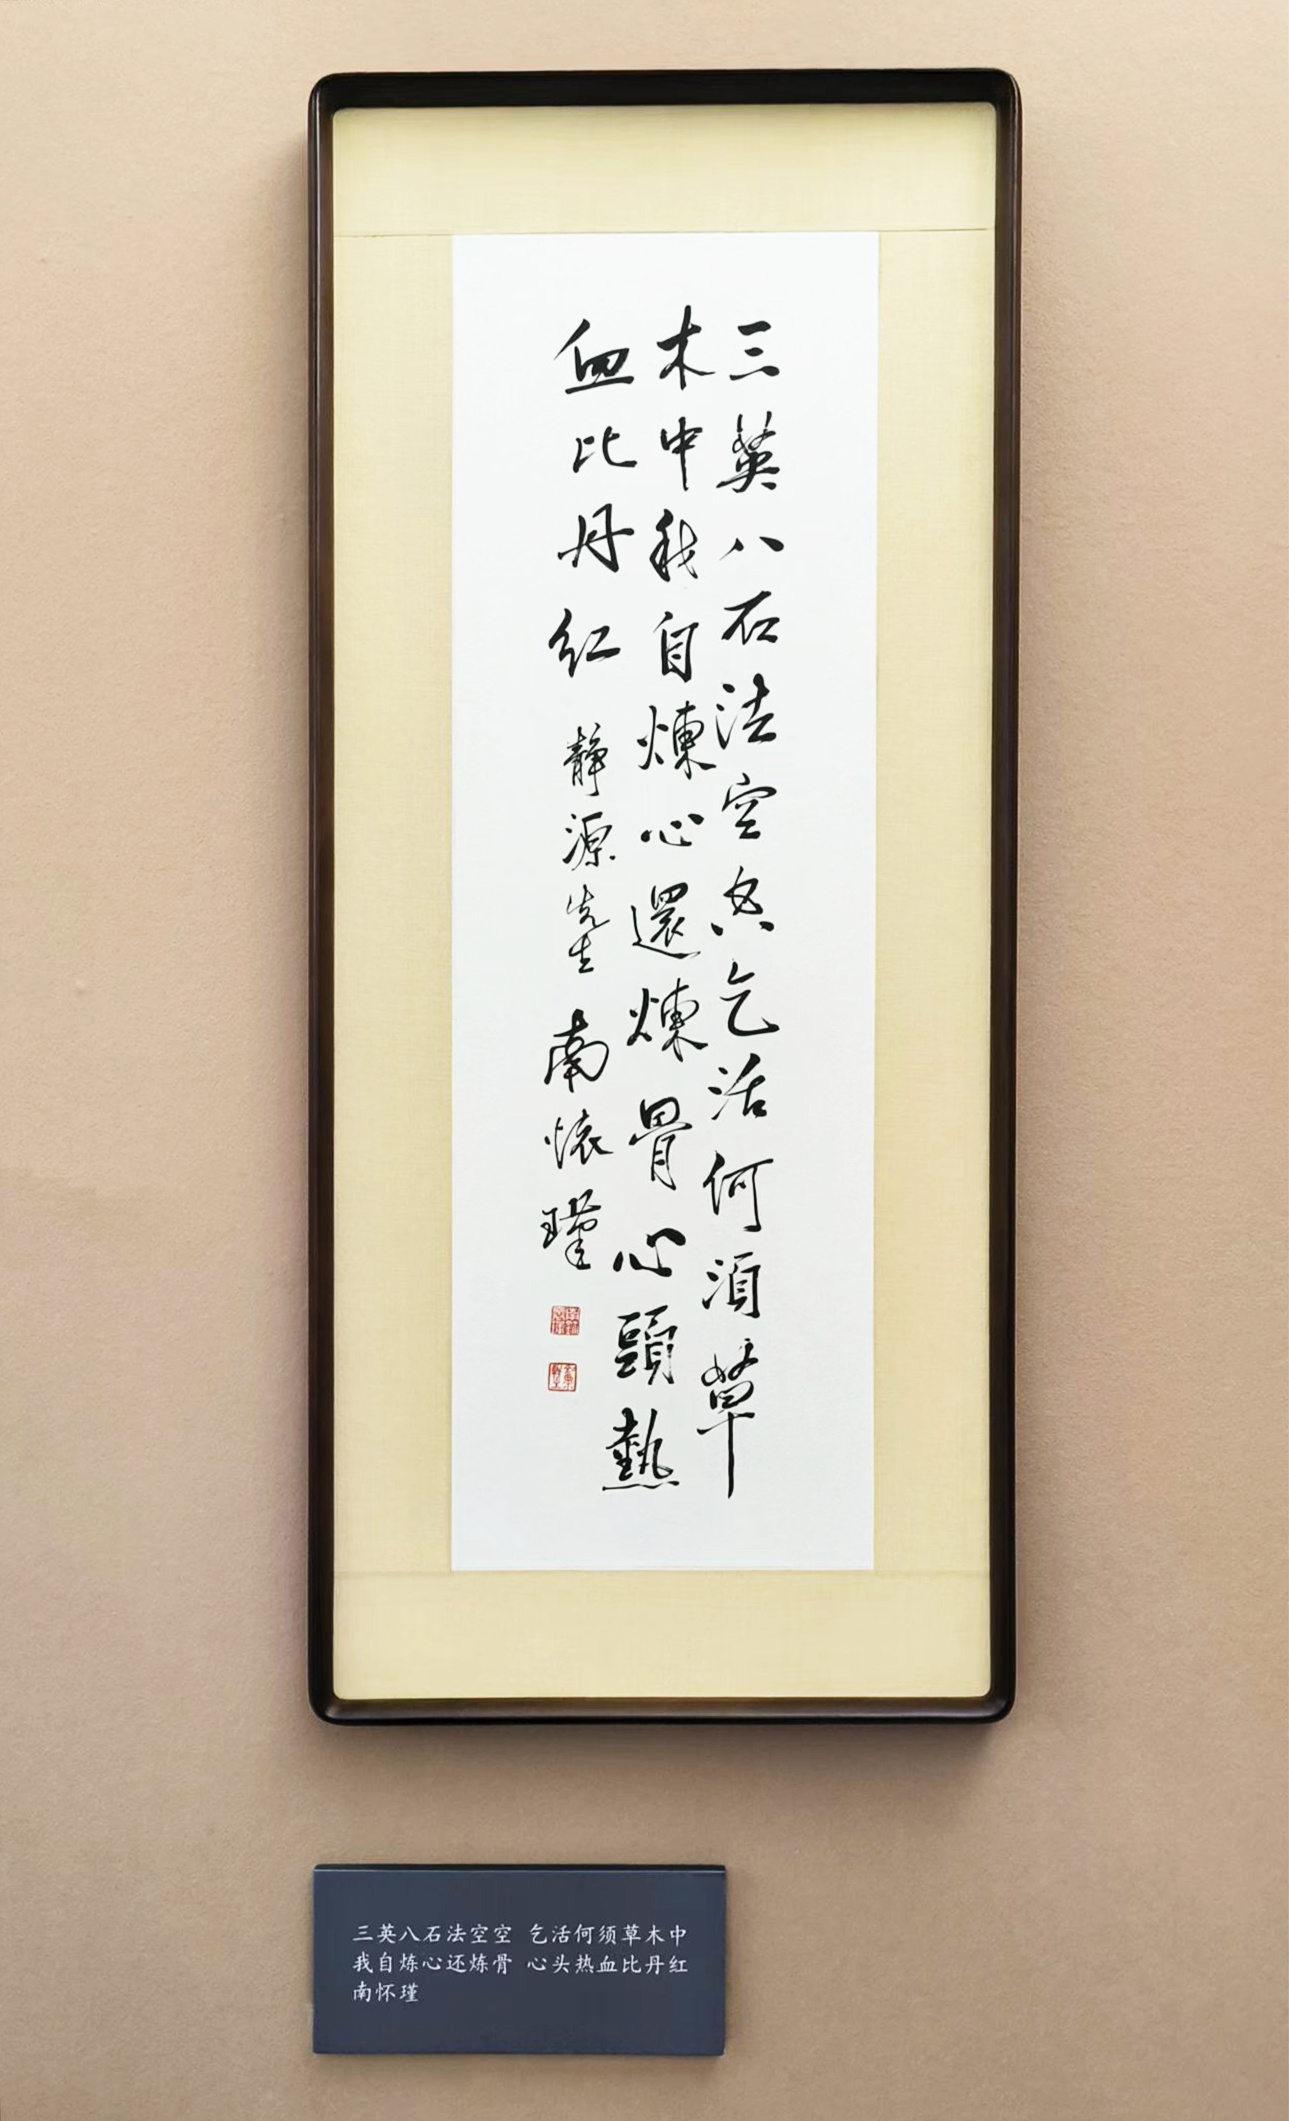 三英八石法空空乞活何須草
木中我自煉心還煉骨心頭熱
血比丹紅 靜源先生 南懷瑾
三英八石法空空 乞活何须草木中
我自炼心还炼骨 心头热血比丹红
南怀瑾